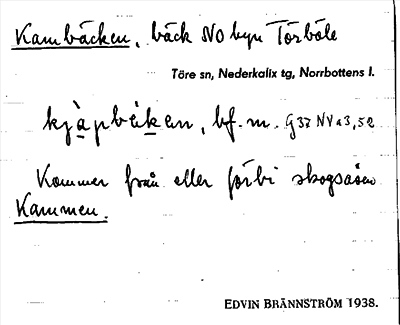 Kambäcken, bäck NO byn Törböle
Töre sn, Nederkalix tg, Norrbottens l.
kjàpbèken, bf. m. G37 NV a3, 52
Kommer från eller förbi skogsåsen
Kammen.
EDVIN BRÄNNSTRÖM 1938.